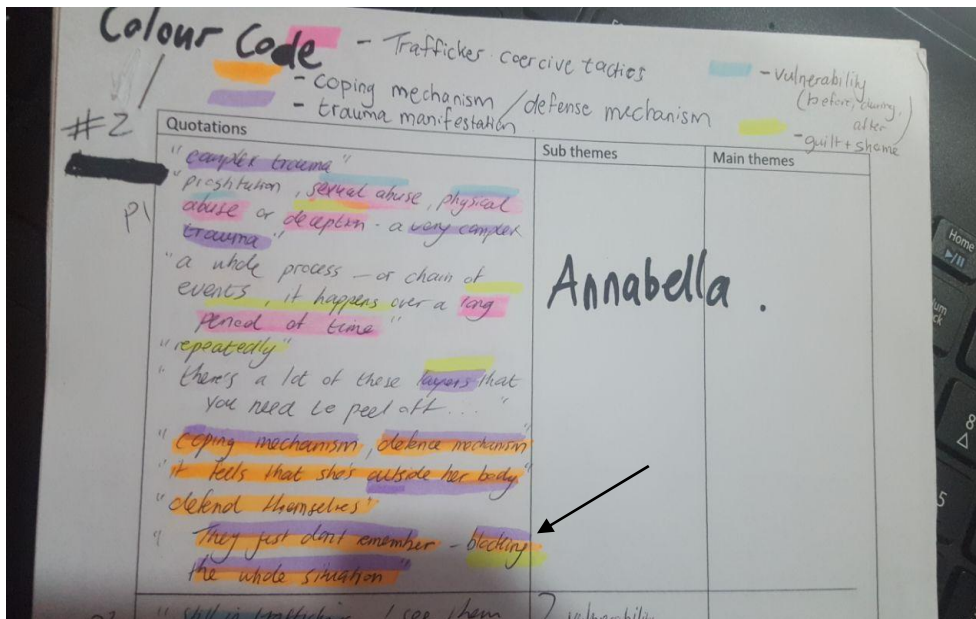 Colour Code - Trafficker coercive tactics
- coping mechanism / defense mechanism
- trauma manifestation
- vulnerability
(before, during,
after)
- guilt + shame
#2
P1
Quotations
Sub themes
Main themes
"complex trauma"
"prostitution, sexual abuse, physical
abuse or deception - a very complex
trauma"
"a whole process - or chain of
events, it happens over a long
period of time"
"repeatedly"
"there's a lot of these layers that
you need to peel off..."
Annabella.
"coping mechanism, defence mechanism"
"it feels that she's outside her body"
"defend themselves"
"They just don't remember - blocking
the whole situation"
I see them
? vulnerability
Home
Num
Lock
8
5